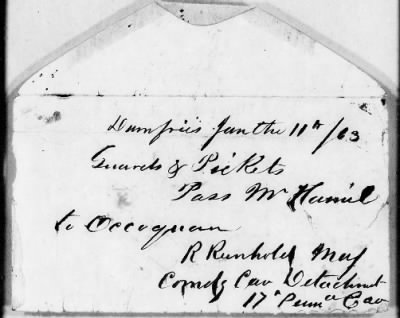 Dumfries Jan the 11th/63
Guards & Pickets
Pass Mr Hamil
to Occoquan
R Runhold Maj
Comdg Cav Detachmt
17" Penna Cav